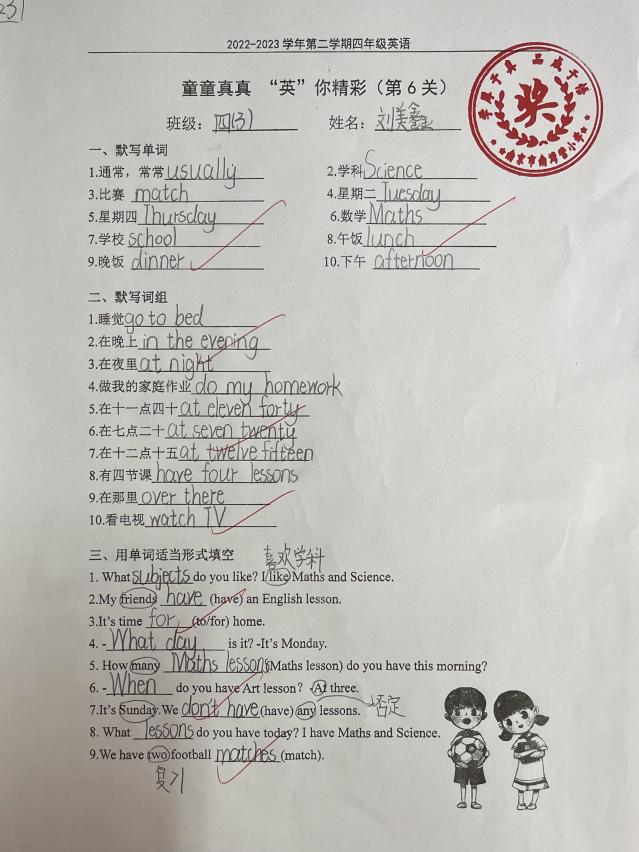 23)
2022-2023 学年第二学期四年级英语
童童真真 “英”你精彩（第 6 关）
班级： 四(3) 姓名： 刘美鑫
奖
一、默写单词
1.通常，常常 usually 2.学科 Science
3.比赛 match 4.星期二 Tuesday
5.星期四 Thursday 6.数学 Maths
7.学校 school 8.午饭 lunch
9.晚饭 dinner 10.下午 afternoon
二、默写词组
1.睡觉 go to bed
2.在晚上 in the evening
3.在夜里 at night
4.做我的家庭作业 do my homework
5.在十一点四十 at eleven forty
6.在七点二十 at seven twenty
7.在十二点十五 at twelve fifteen
8.有四节课 have four lessons
9.在那里 over there
10.看电视 watch TV
三、用单词适当形式填空 喜欢学科
1. What subjects do you like? I like Maths and Science.
2.My friends have (have) an English lesson.
3.It's time for (to/for) home.
4. - What day is it? -It's Monday.
5. How many Maths lessons (Maths lesson) do you have this morning?
6. - When do you have Art lesson? -At three.
7.It's Sunday.We don't have (have) any lessons. 否定
8. What lessons do you have today? I have Maths and Science.
9.We have two football matches (match).
复习